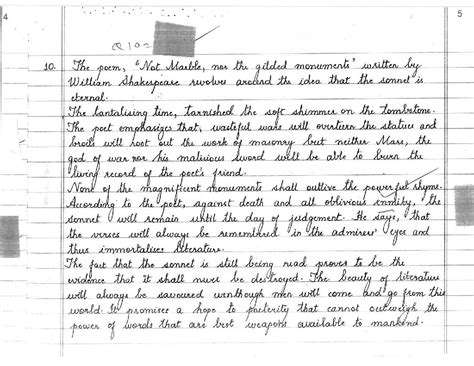 4
5
Q10=
10. The poem, "Not Marble, nor the gilded monuments" written by
William Shakespeare revolves around the idea that the sonnet is
eternal.
The tantalising time, tarnished the soft shimmer on the Tombstone.
The poet emphasizes that, wasteful wars will overturn the statues and
broils will root out the work of masonry but neither Mars, the
god of war nor his malicious sword will be able to burn the
living record of the poet's friend.
None of the magnificent monuments shall outlive the powerful rhyme.
According to the poet, against death and all oblivious enmity, the
sonnet will remain until the day of judgement. He says, that
the verses will always be remembered in the admirers' eyes and
thus immortalises literature.
The fact that the sonnet is still being read proves to be the
evidence that it shall never be destroyed. The beauty of literature
will always be savoured men will come and go from this
world. It promises a hope to posterity that cannot outweigh the
power of words that are best weapons available to mankind.